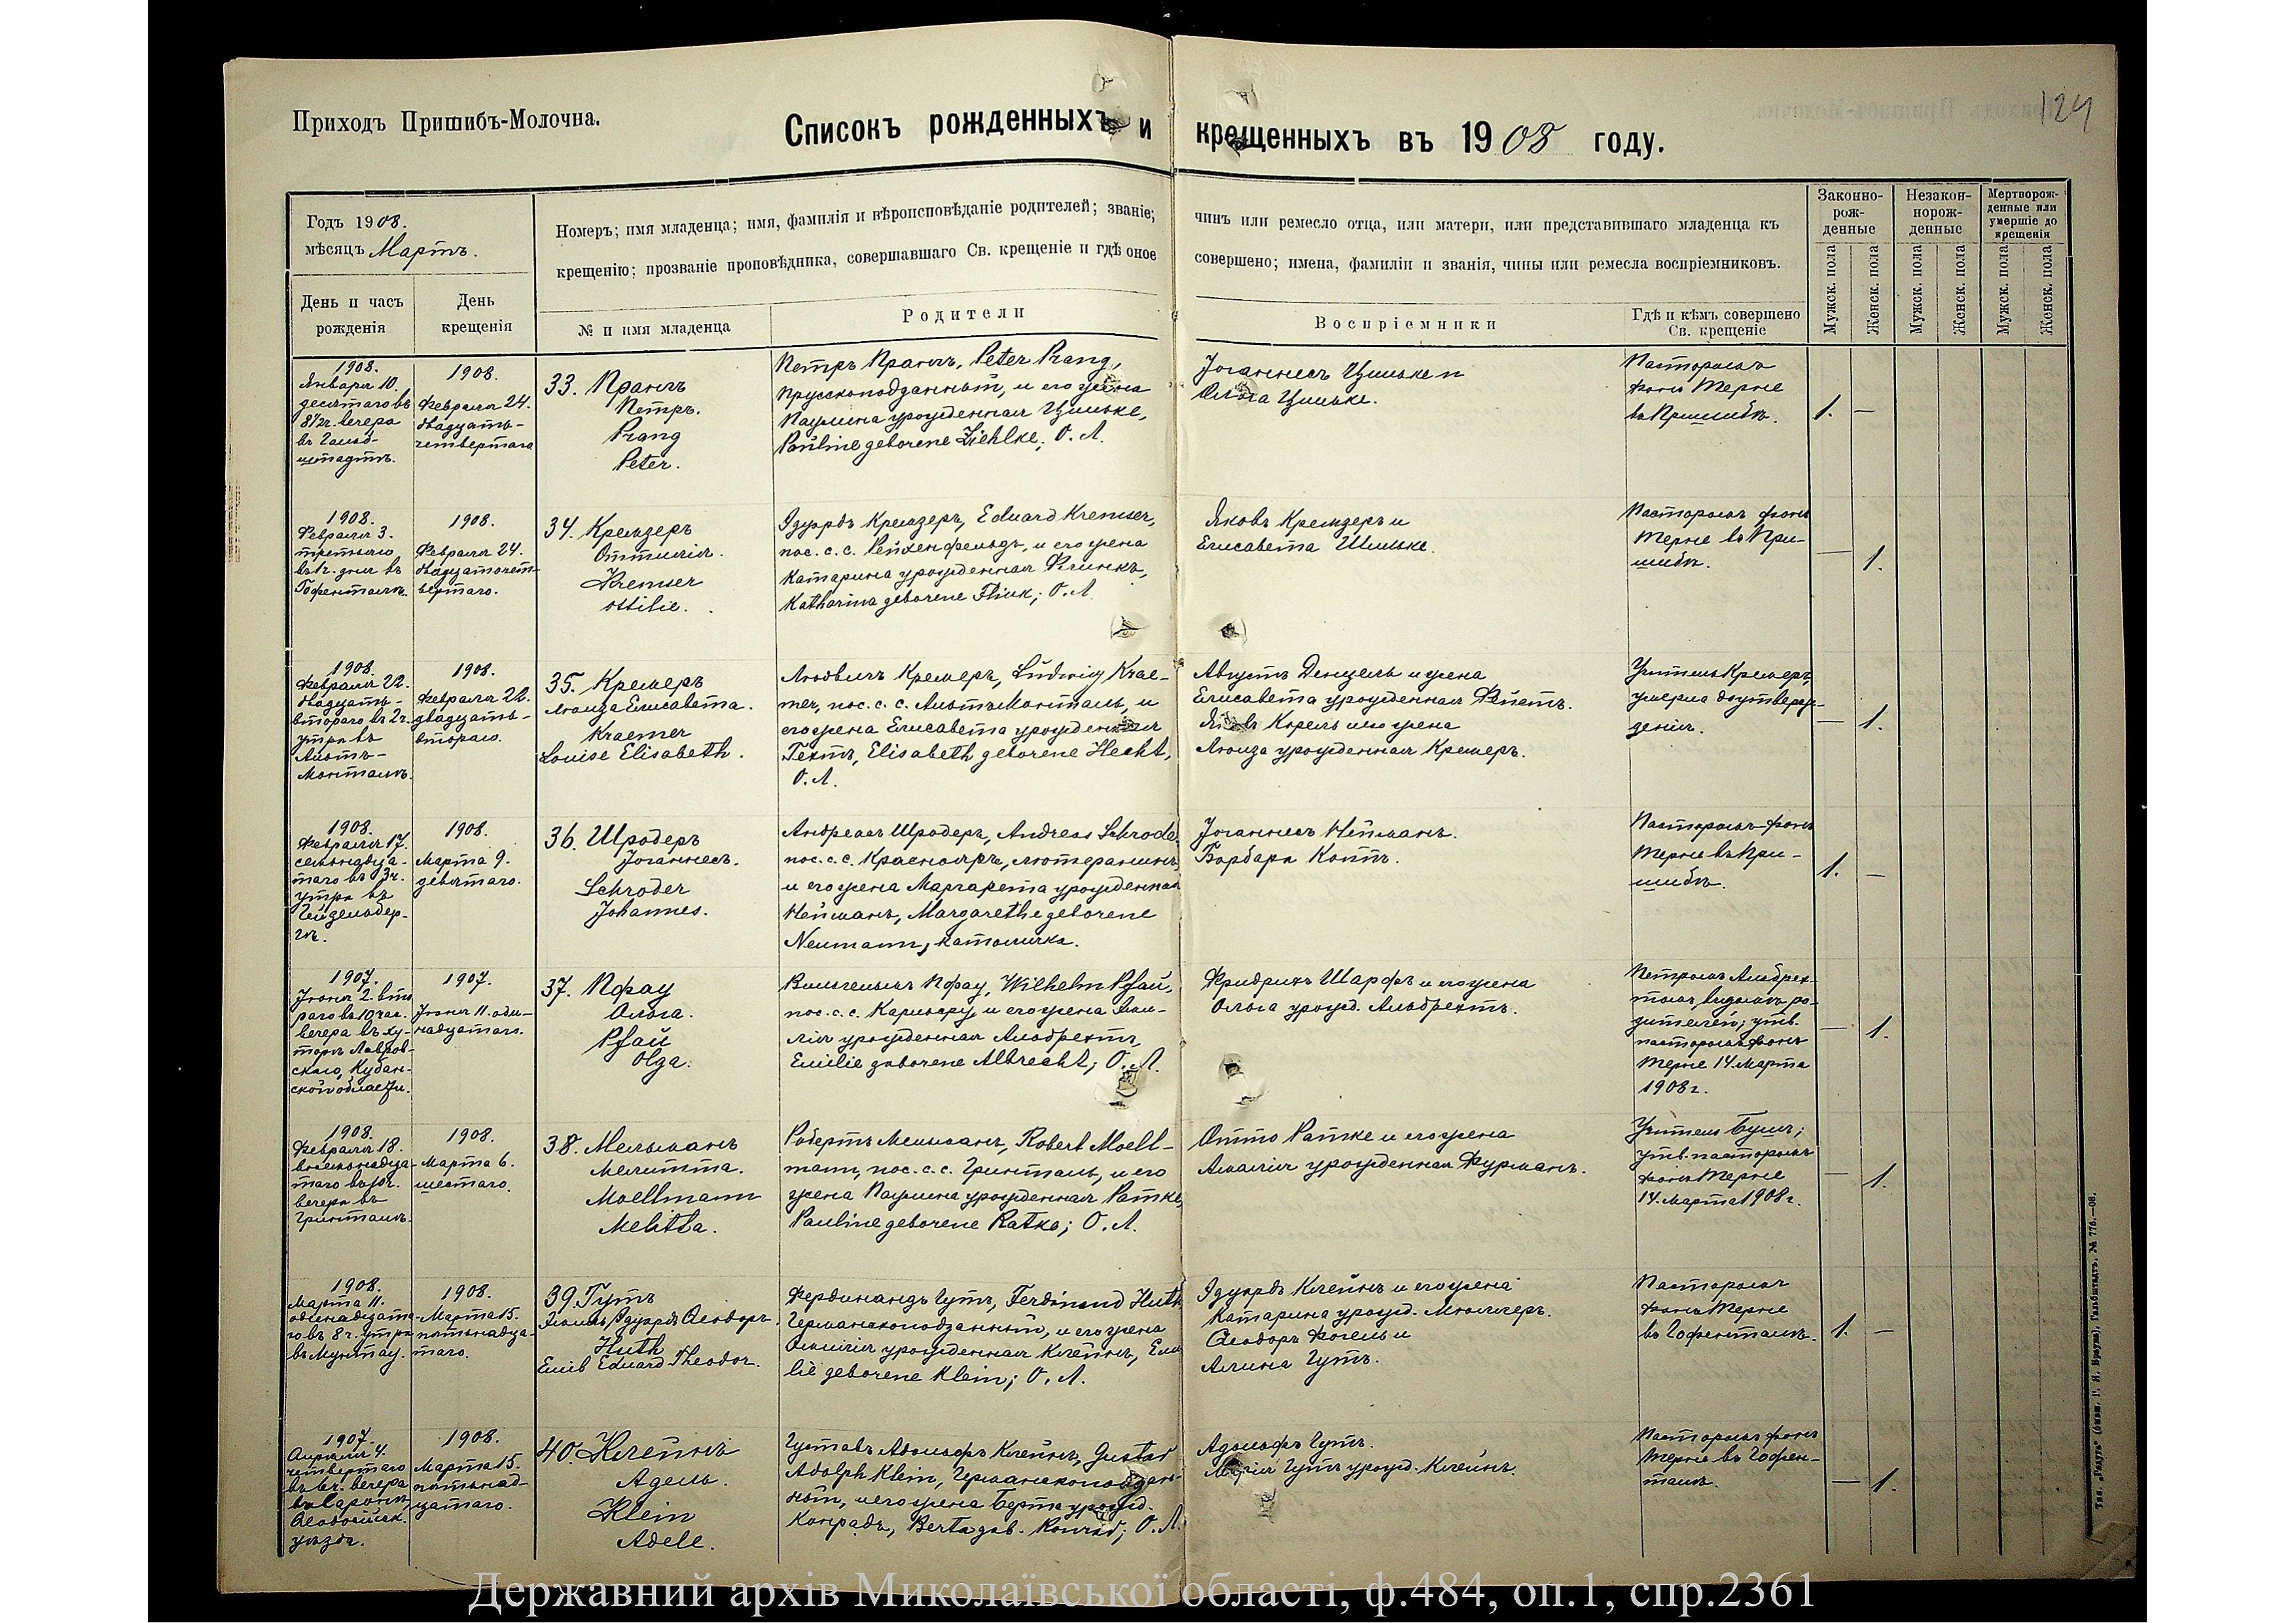 Приходъ Пришибъ-Молочна.
Списокъ рожденныхъ и крещенныхъ въ 1908 году.
124
Годъ 1908.
мѣсяцъ Мартъ.
Номеръ; имя младенца; имя, фамилія и вѣроисповѣданіе родителей; званіе;
чинъ или ремесло отца, или матери, или представившаго младенца къ
крещенію; прозваніе проповѣдника, совершавшаго Св. крещеніе и гдѣ оное
совершено; имена, фамиліи и званія, чины или ремесла воспріемниковъ.
Законно-
рож-
денные
Незакон-
норож-
денные
Мертворож-
денные или
умершіе до
крещенія
День и часъ
рожденія
День
крещенія
№ и имя младенца
Родители
Воспріемники
Гдѣ и кѣмъ совершено
Св. крещеніе
Мужск. пола
Женск. пола
Мужск. пола
Женск. пола
Мужск. пола
Женск. пола
1908.
Января 10.
десятаго въ
8½ч. вечера
въ Гальб-
штадтѣ.
1908.
Февраля 24.
двадцать-
четвертаго
33. Прангъ
Петръ.
Prang
Peter.
Петръ Прангъ, Peter Prang,
прусскоподданный, и его жена
Паулина урожденная Цильке,
Pauline geborene Ziehlke; О. Л.
Іоганнесъ Цильке и
Ольга Цильке.
Пасторомъ
фонъ Терне
въ Пришибѣ.
1. —
1908.
Февраля 3.
третьяго
въ 1ч. дня въ
Гофенталѣ.
1908.
Февраля 24.
двадцатьчет-
вертаго.
34. Кремзеръ
Оттилія.
Kremser
Ottilie.
Эдуардъ Кремзеръ, Eduard Kremser,
пос. с. с. Рейхенфельдъ, и его жена
Катарина урожденная Флинкъ,
Katharina geborene Flink; О. Л.
Яковъ Кремзеръ и
Елисавета Шильке.
Пасторомъ фонъ
Терне въ При-
шибѣ.
— 1.
1908.
Февраля 22.
двадцать-
втораго въ 2ч.
утра въ
Альтъ-
Монталѣ.
1908.
Февраля 22.
двадцать-
втораго.
35. Кремеръ
Луиза Елисавета.
Kraemer
Louise Elisabeth.
Людвигъ Кремеръ, Ludwig Krae-
mer, пос. с. с. Альтъ-Монталь, и
его жена Елисавета урожденная
Гехтъ, Elisabeth geborene Hecht,
О. Л.
Августъ Денцель и жена
Елисавета урожденная Фейетъ.
Яковъ Корель и его жена
Луиза урожденная Кремеръ.
Учитель Кремеръ,
умерла до утверж-
денія.
— 1.
1908.
Февраля 17.
семьнадца-
таго въ 3ч.
утра въ
Гейдельбер-
гѣ.
1908.
Марта 9.
девятаго.
36. Шродеръ
Іоганнесъ.
Schroder
Johannes.
Андреасъ Шродеръ, Andreas Schroder
пос. с. с. Краснояръ, лютеранинъ,
и его жена Маргарета урожденная
Нейманъ, Margarethe geborene
Neumann, католичка.
Іоганнесъ Нейманъ.
Барбара Коппъ.
Пасторомъ фонъ
Терне въ При-
шибѣ.
1. —
1907.
Іюня 2. вто
раго въ 10 час.
вечера въ ху-
торѣ Лавров-
скаго, Кубан-
ской области.
1907.
Іюня 11. оди-
надцатаго.
37. Пфау
Ольга.
Pfau
Olga.
Вильгельмъ Пфау, Wilhelm Pfau,
пос. с. с. Карльсру, и его жена Эми-
лія урожденная Альбрехтъ,
Emilie geborene Albrecht; О. Л.
Фридрихъ Шарфъ и его жена
Ольга урожд. Альбрехтъ.
Петромъ Альбрех-
томъ, дѣдомъ ро-
дителей; утв.
пасторомъ фонъ
Терне 14. Марта
1908 г.
— 1.
1908.
Февраля 18.
восемьнадца-
таго въ 10ч.
вечера въ
Гринталѣ.
1908.
Марта 6.
шестаго.
38. Мельманъ
Мелитта.
Moellmann
Melitta.
Робертъ Мельманъ, Robert Moell-
mann, пос. с. с. Гринталь, и его
жена Паулина урожденная Ратке,
Pauline geborene Ratke; О. Л.
Отто Ратке и его жена
Амалія урожденная Фурманъ.
Учитель Бушъ;
утв. пасторомъ
фонъ Терне
14. Марта 1908 г.
— 1.
1908.
Марта 11.
одинадцата-
го въ 8ч. утра
въ Мунтау.
1908.
Марта 15.
пятьнадца-
таго.
39. Гутъ
Эмиль Эдуардъ Ѳеодоръ.
Huth
Emil Eduard Theodor.
Фердинандъ Гутъ, Ferdinand Huth
Германскоподданный, и его жена
Эмилія урожденная Клейнъ, Emi
lie geborene Klein; О. Л.
Эдуардъ Клейнъ и его жена
Катарина урожд. Мюллеръ.
Ѳеодоръ Фогель и
Алина Гутъ.
Пасторомъ
фонъ Терне
въ Гофенталѣ.
1. —
1907.
Апрѣля 4.
четвертаго
въ 6ч. вечера
въ Саронѣ,
Ѳеодосійск.
уѣзда.
1908.
Марта 15.
пятьнад-
цатаго.
40. Клейнъ
Адель.
Klein
Adele.
Густавъ Адольфъ Клейнъ, Gustav
Adolph Klein, Германскоподдан-
ный, и его жена Берта урожд.
Конрадъ, Berta geb. Konrad; О. Л.
Адольфъ Гутъ.
Марія Гутъ урожд. Клейнъ.
Пасторомъ фонъ
Терне въ Гофен-
талѣ.
— 1.
Тип. „Радуга“ (бывш. П. Я. Брауна), Гальбштадтъ, № 776.—08.
Державний архів Миколаївської області, ф.484, оп.1, спр.2361